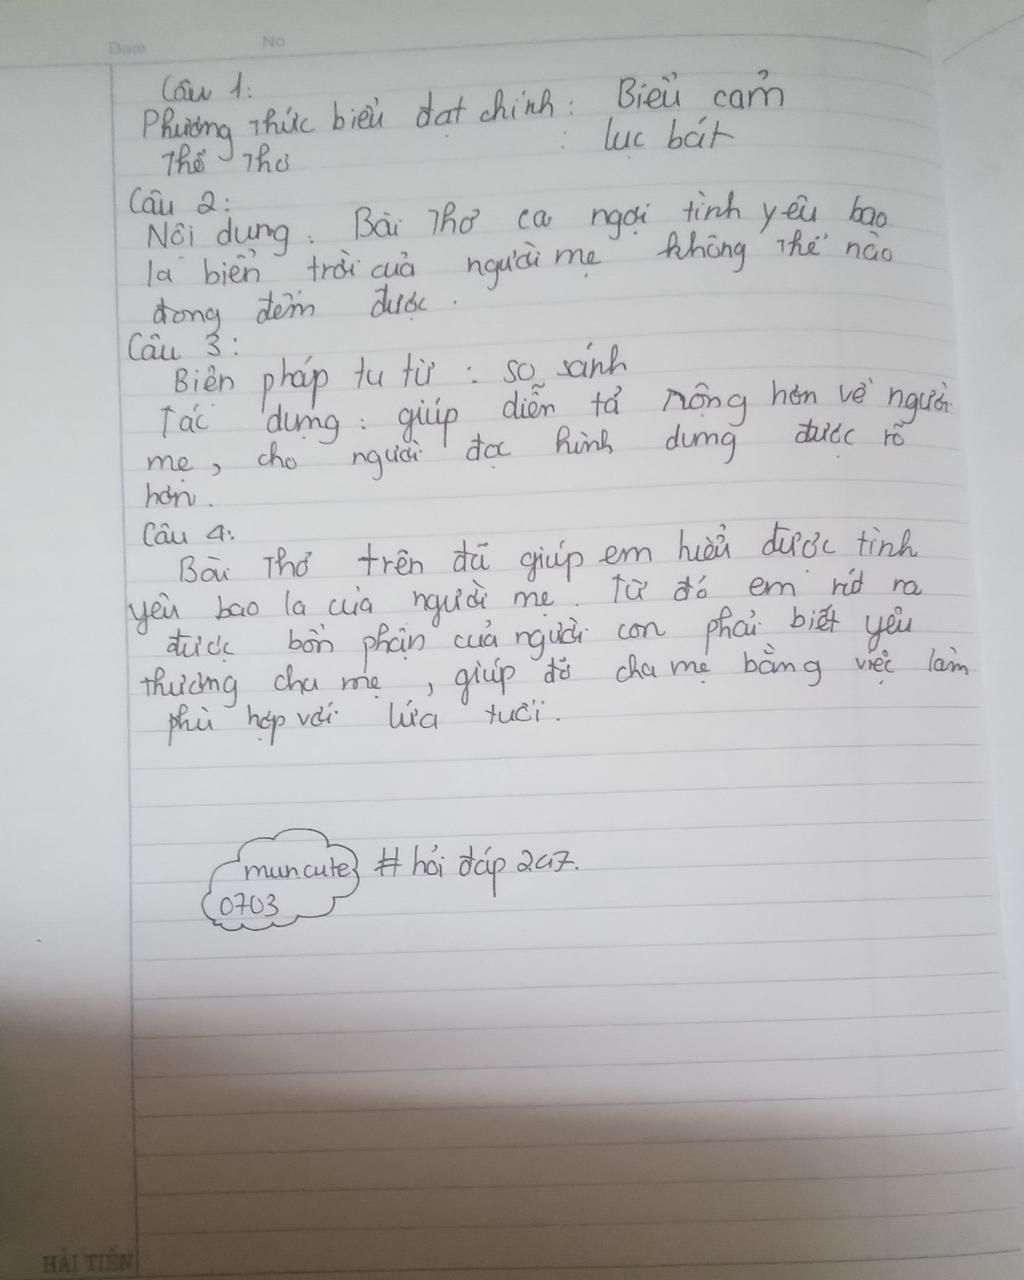 Date No
Câu 1:
Phương thức biểu đạt chính: Biểu cảm
Thể Thơ : lục bát
Câu 2:
Nôi dung: Bài Thơ ca ngợi tình yêu bao
la biển trời của người mẹ không thể nào
đong đếm được.
Câu 3:
Biên pháp tu từ: so sánh
Tác dụng: giúp diễn tả rộng hơn về người
mẹ, cho người đọc hình dung được rõ
hơn.
Câu 4:
Bài Thơ trên đã giúp em hiểu được tình
yêu bao la của người mẹ. Từ đó em rút ra
được bổn phận của người con phải biết yêu
thương cha mẹ, giúp đỡ cha mẹ bằng việc làm
phù hợp với lứa tuổi.
muncute # hỏi đáp 247.
0703
HẢI TIẾN